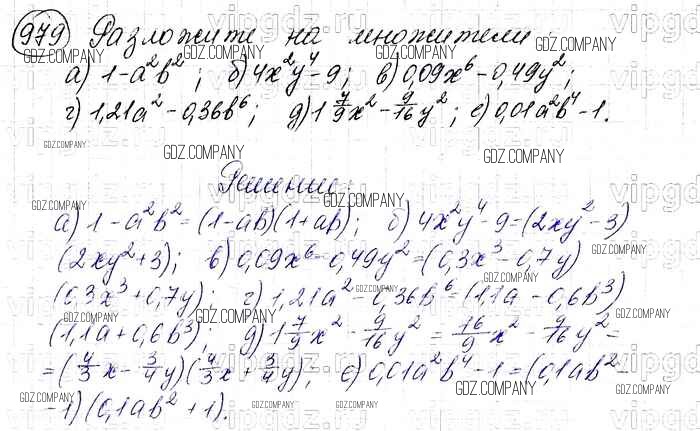 979 Разложите на множители:
а) 1-a²b²; б) 4x²y⁴-9; в) 0,09x⁶-0,49y²;
г) 1,21a²-0,36b⁶; д) 1 7/9 x² - 9/16 y²; е) 0,01a²b⁴-1.
Решение:
а) 1-a²b² = (1-ab)(1+ab); б) 4x²y⁴-9=(2xy²-3)
(2xy²+3); в) 0,09x⁶-0,49y²=(0,3x³-0,7y)
(0,3x³+0,7y); г) 1,21a²-0,36b⁶=(1,1a-0,6b³)
(1,1a+0,6b³); д) 1 7/9 x² - 9/16 y² = 16/9 x² - 9/16 y² =
=(4/3 x - 3/4 y)(4/3 x + 3/4 y); е) 0,01a²b⁴-1=(0,1ab²-
-1)(0,1ab²+1).